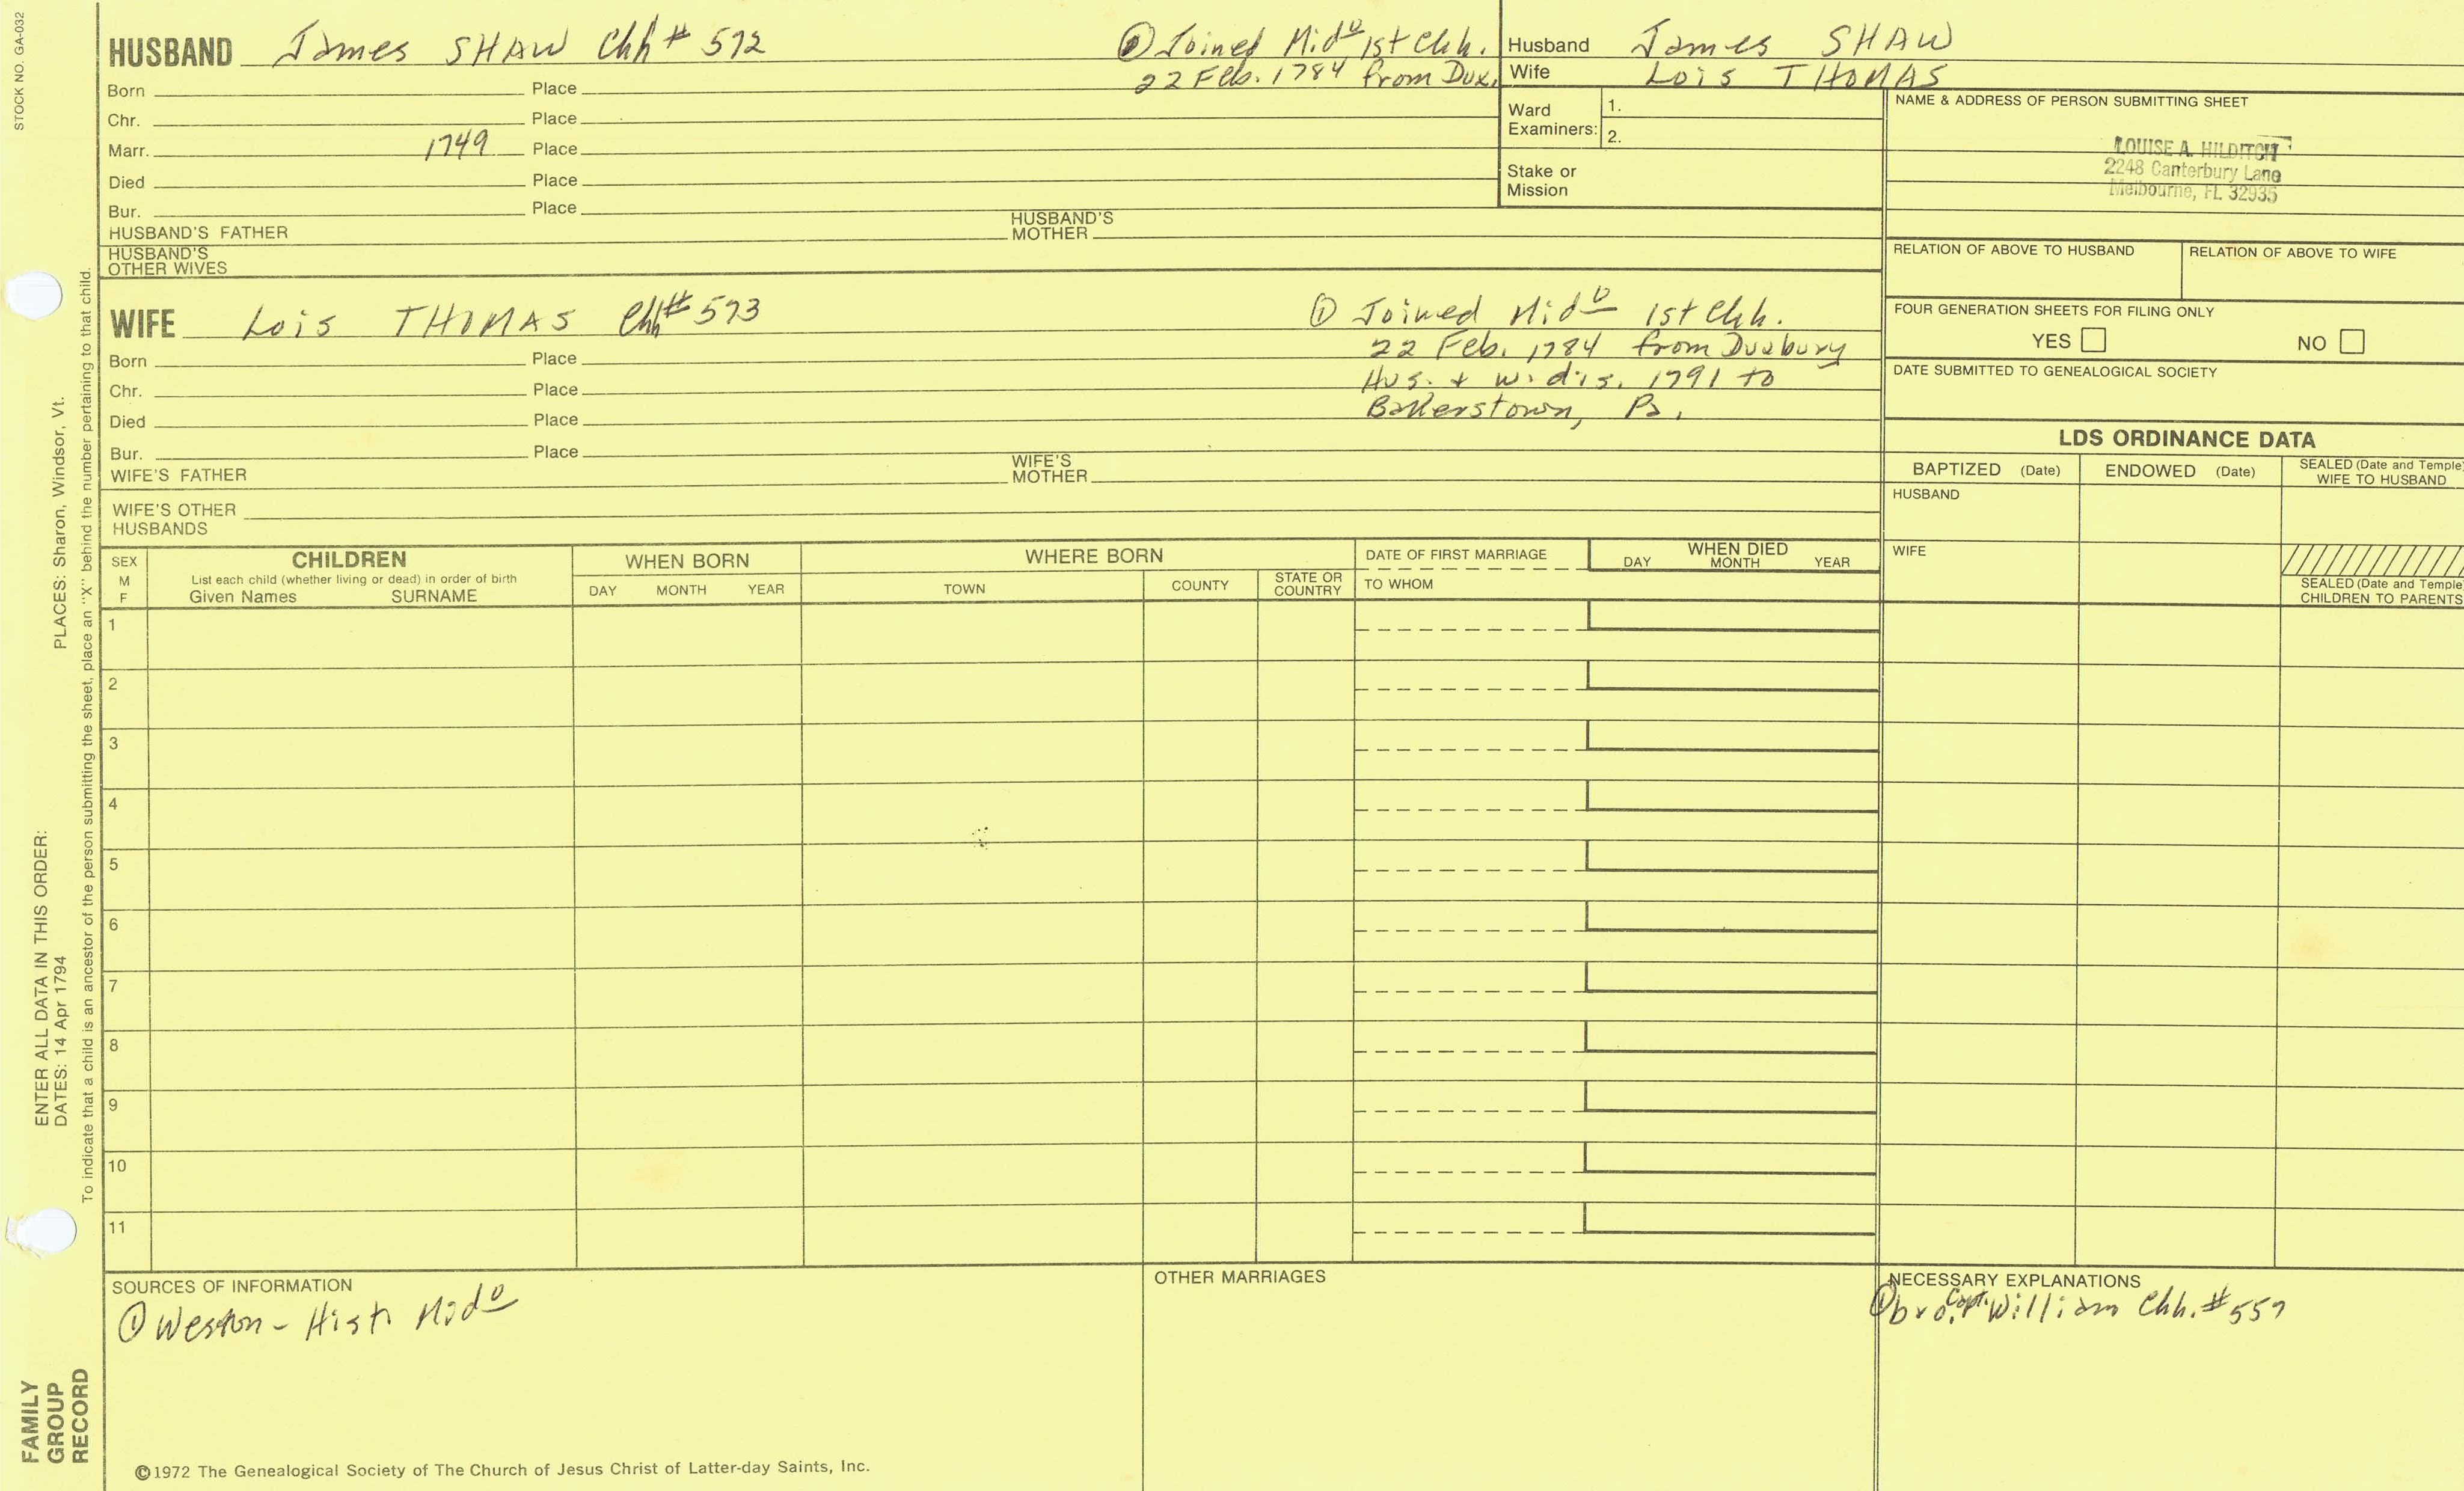 STOCK NO. GA-032
HUSBAND James SHAW Chh # 572
① Joined Mid° 1st Chh.
22 Feb. 1784 from Dux.
Born Place
Chr. Place
Marr. 1749 Place
Died Place
Bur. Place
HUSBAND'S FATHER
HUSBAND'S MOTHER
HUSBAND'S OTHER WIVES
Husband James SHAW
Wife Lois THOMAS
Ward Examiners: 1.
2.
Stake or Mission
NAME & ADDRESS OF PERSON SUBMITTING SHEET
LOUISE A. HILDITCH
2248 Canterbury Lane
Melbourne, FL 32935
RELATION OF ABOVE TO HUSBAND
RELATION OF ABOVE TO WIFE
FOUR GENERATION SHEETS FOR FILING ONLY
YES NO
DATE SUBMITTED TO GENEALOGICAL SOCIETY
WIFE Lois THOMAS Chh # 573
① Joined Mid° 1st Chh.
22 Feb. 1784 from Duxbury
Hus. + w. dis. 1791 to
Bakerstown, Ps.
Born Place
Chr. Place
Died Place
Bur. Place
WIFE'S FATHER
WIFE'S MOTHER
WIFE'S OTHER HUSBANDS
LDS ORDINANCE DATA
BAPTIZED (Date)
ENDOWED (Date)
SEALED (Date and Temple)
WIFE TO HUSBAND
HUSBAND
WIFE
SEALED (Date and Temple)
CHILDREN TO PARENTS
SEX
M
F
CHILDREN
List each child (whether living or dead) in order of birth
Given Names SURNAME
WHEN BORN
DAY MONTH YEAR
WHERE BORN
TOWN COUNTY STATE OR COUNTRY
DATE OF FIRST MARRIAGE
TO WHOM
WHEN DIED
DAY MONTH YEAR
1
2
3
4
5
6
7
8
9
10
11
SOURCES OF INFORMATION
① Weston - Hist. Mid°
OTHER MARRIAGES
NECESSARY EXPLANATIONS
① bro. Capt. William Chh. # 557
©1972 The Genealogical Society of The Church of Jesus Christ of Latter-day Saints, Inc.
FAMILY
GROUP
RECORD
ENTER ALL DATA IN THIS ORDER:
DATES: 14 Apr 1794 PLACES: Sharon, Windsor, Vt.
To indicate that a child is an ancestor of the person submitting the sheet, place an "X" behind the number pertaining to that child.